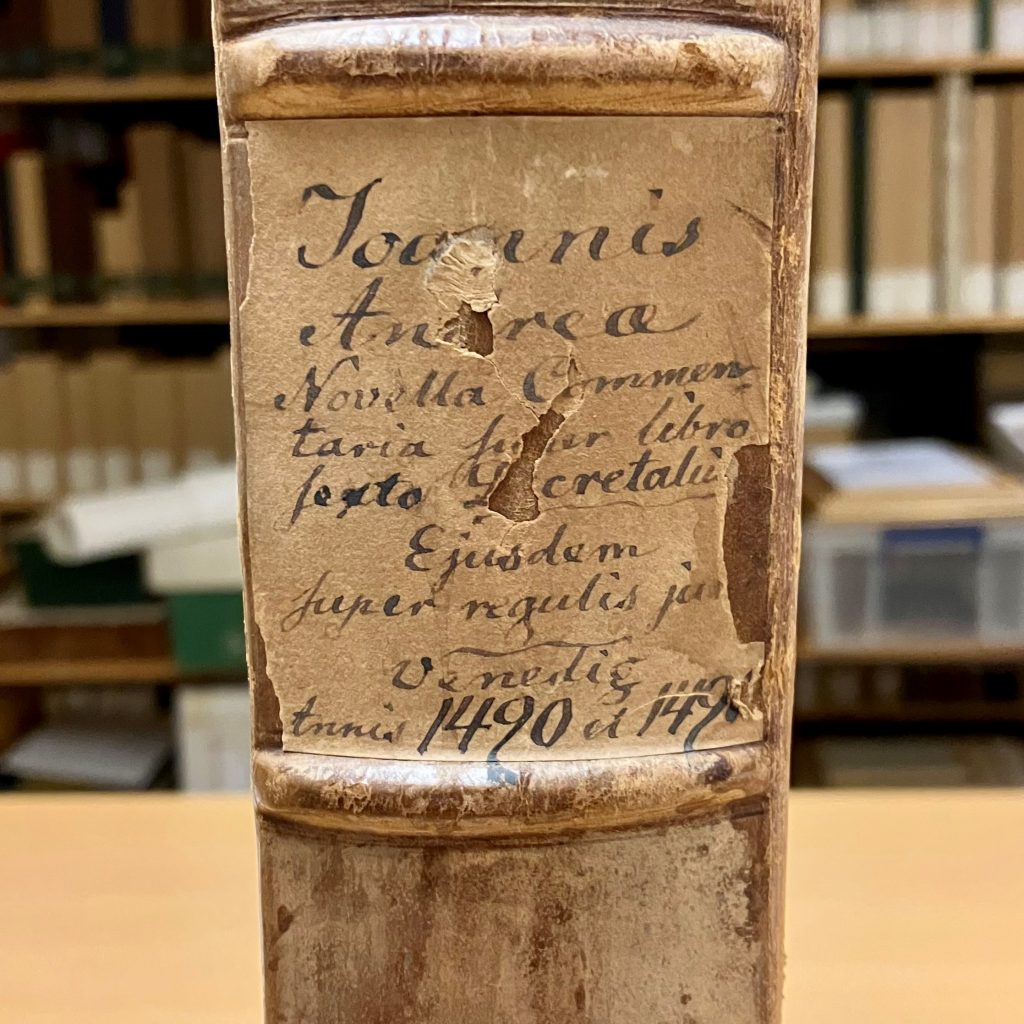 Joannis
Andreæ
Novella Commen
taria super libro
sexto Decretaliū
Ejusdem
super regulis
Venedig
Annis 1490 et